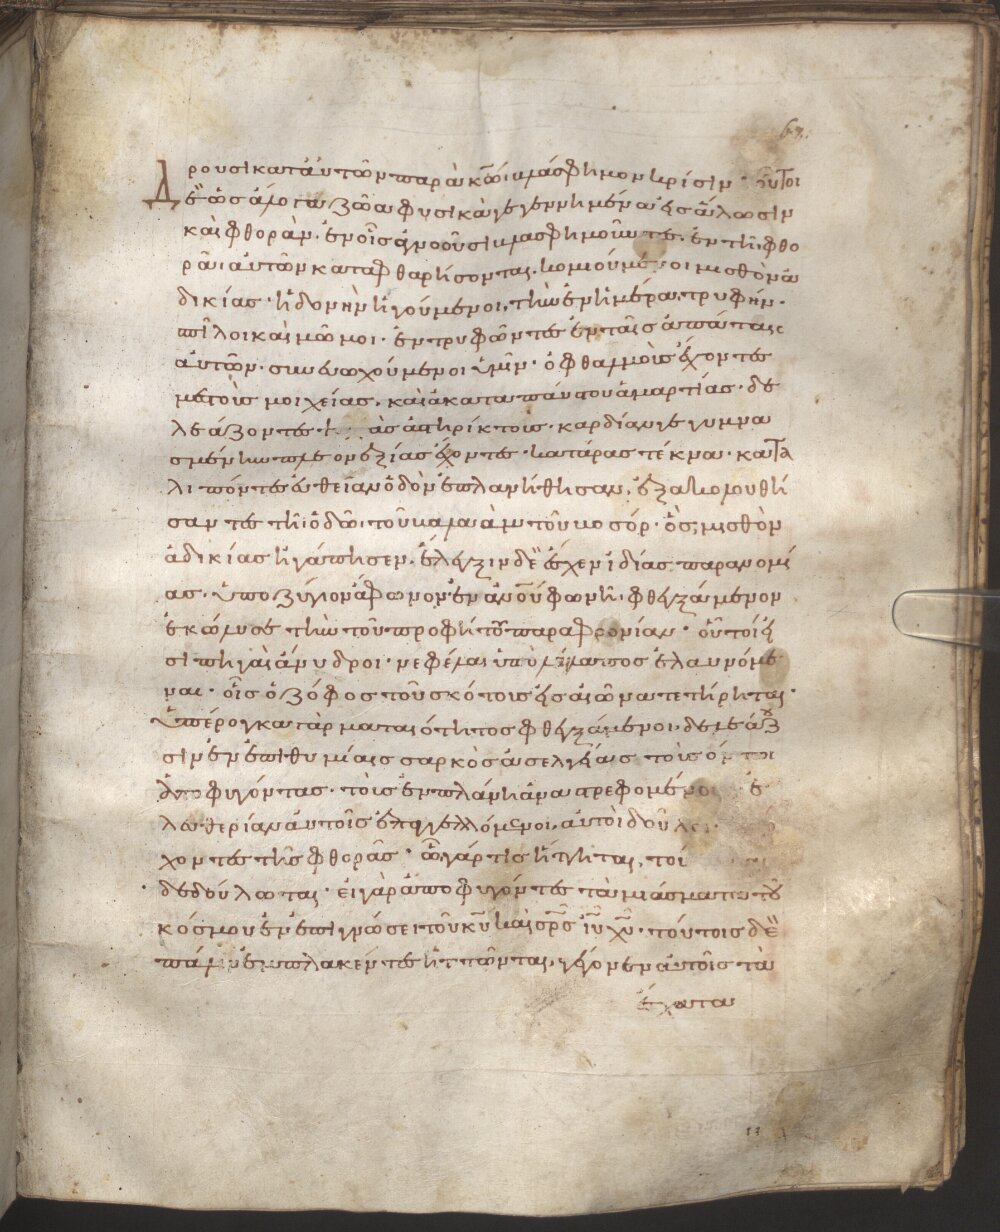 67.
ρουσι κατ αὐτῶν παρὰ κῶι βλάσφημον κρίσιν · οὗτοι
δὲ ὡς ἄλογα ζῶα φυσικὰ γεγεννημένα εἰς ἅλωσιν
καὶ φθοράν · ἐν οἷς ἀγνοοῦσι βλασφημοῦντες · ἐν τῆι φθο
ρᾶι αὐτῶν καταφθαρήσονται · κομιούμενοι μισθὸν ἀ
δικίας · ἡδονὴν ἡγούμενοι, τὴν ἐν ἡμέρα τρυφήν ·
σπῖλοι καὶ μῶμοι · ἐντρυφῶντες ἐν ταῖς ἀπάταις
αὐτῶν · συνευωχούμενοι ὑμῖν · ὀφθαλμοὺς ἔχοντες
μεστοὺς μοιχείας, καὶ ἀκαταπάυστου ἁμαρτίας · δε
λεάζοντες ἀστηρίκτους · καρδίαν γεγυμνα
σμένην πλεονεξίας ἔχοντες · κατάρας τέκνα · κατα
λιπόντες εὐθεῖαν ὁδὸν ἐπλανήθησαν, ἐξακολουθή
σαντες τῆι ὁδῶ · τοῦ βαλαὰμ τοῦ βοσόρ · ὃς μισθὸν
ἀδικίας ἠγάπησεν · ἔλεγξιν δὲ ἔσχεν ἰδίας παρανομί
ας · ὑποζύγιον ἄφωνον ἐν ἀνοῦ φωνῆ · φθεγξάμενον
ἐκώλυσε τὴν τοῦ προφήτου παραφρονίαν · οὗτοί εἰ
σι πηγαὶ ἄνυδροι · νεφέλαι ὑπὸ λαίλαπος ἐλαυνόμε
ναι · οἷς ὁ ζόφος τοῦ σκότους εἰς αἰῶνα τετήρηται ·
ὑπέρογκα γὰρ ματαιότητος φθεγξάμενοι, δελεάζου
σιν ἐν ἐπιθυμίαις σαρκὸς ἀσελγείαις τοὺς ὄντως
ἀποφυγόντας · τοὺς ἐν πλάνη ἀναστρεφομένους ἐ
λευθερίαν αὐτοῖς ἐπαγγελλόμενοι, αὐτοὶ δοῦλοι
χοντες τῆς φθορᾶς · ὧ γάρ τις ἥττηται, τού
δεδούλωται · εἰ γὰρ ἀποφυγόντες τὰ μιάσματα τοῦ
κόσμου ἐν ἐπιγνώσει τοῦ κυ καὶ σρς ιυ χυ · τούτοις δὲ
πάλιν ἐμπλακέντες ἡττῶνται, γέγονεν αὐτοῖς τὰ
ἔσχατα